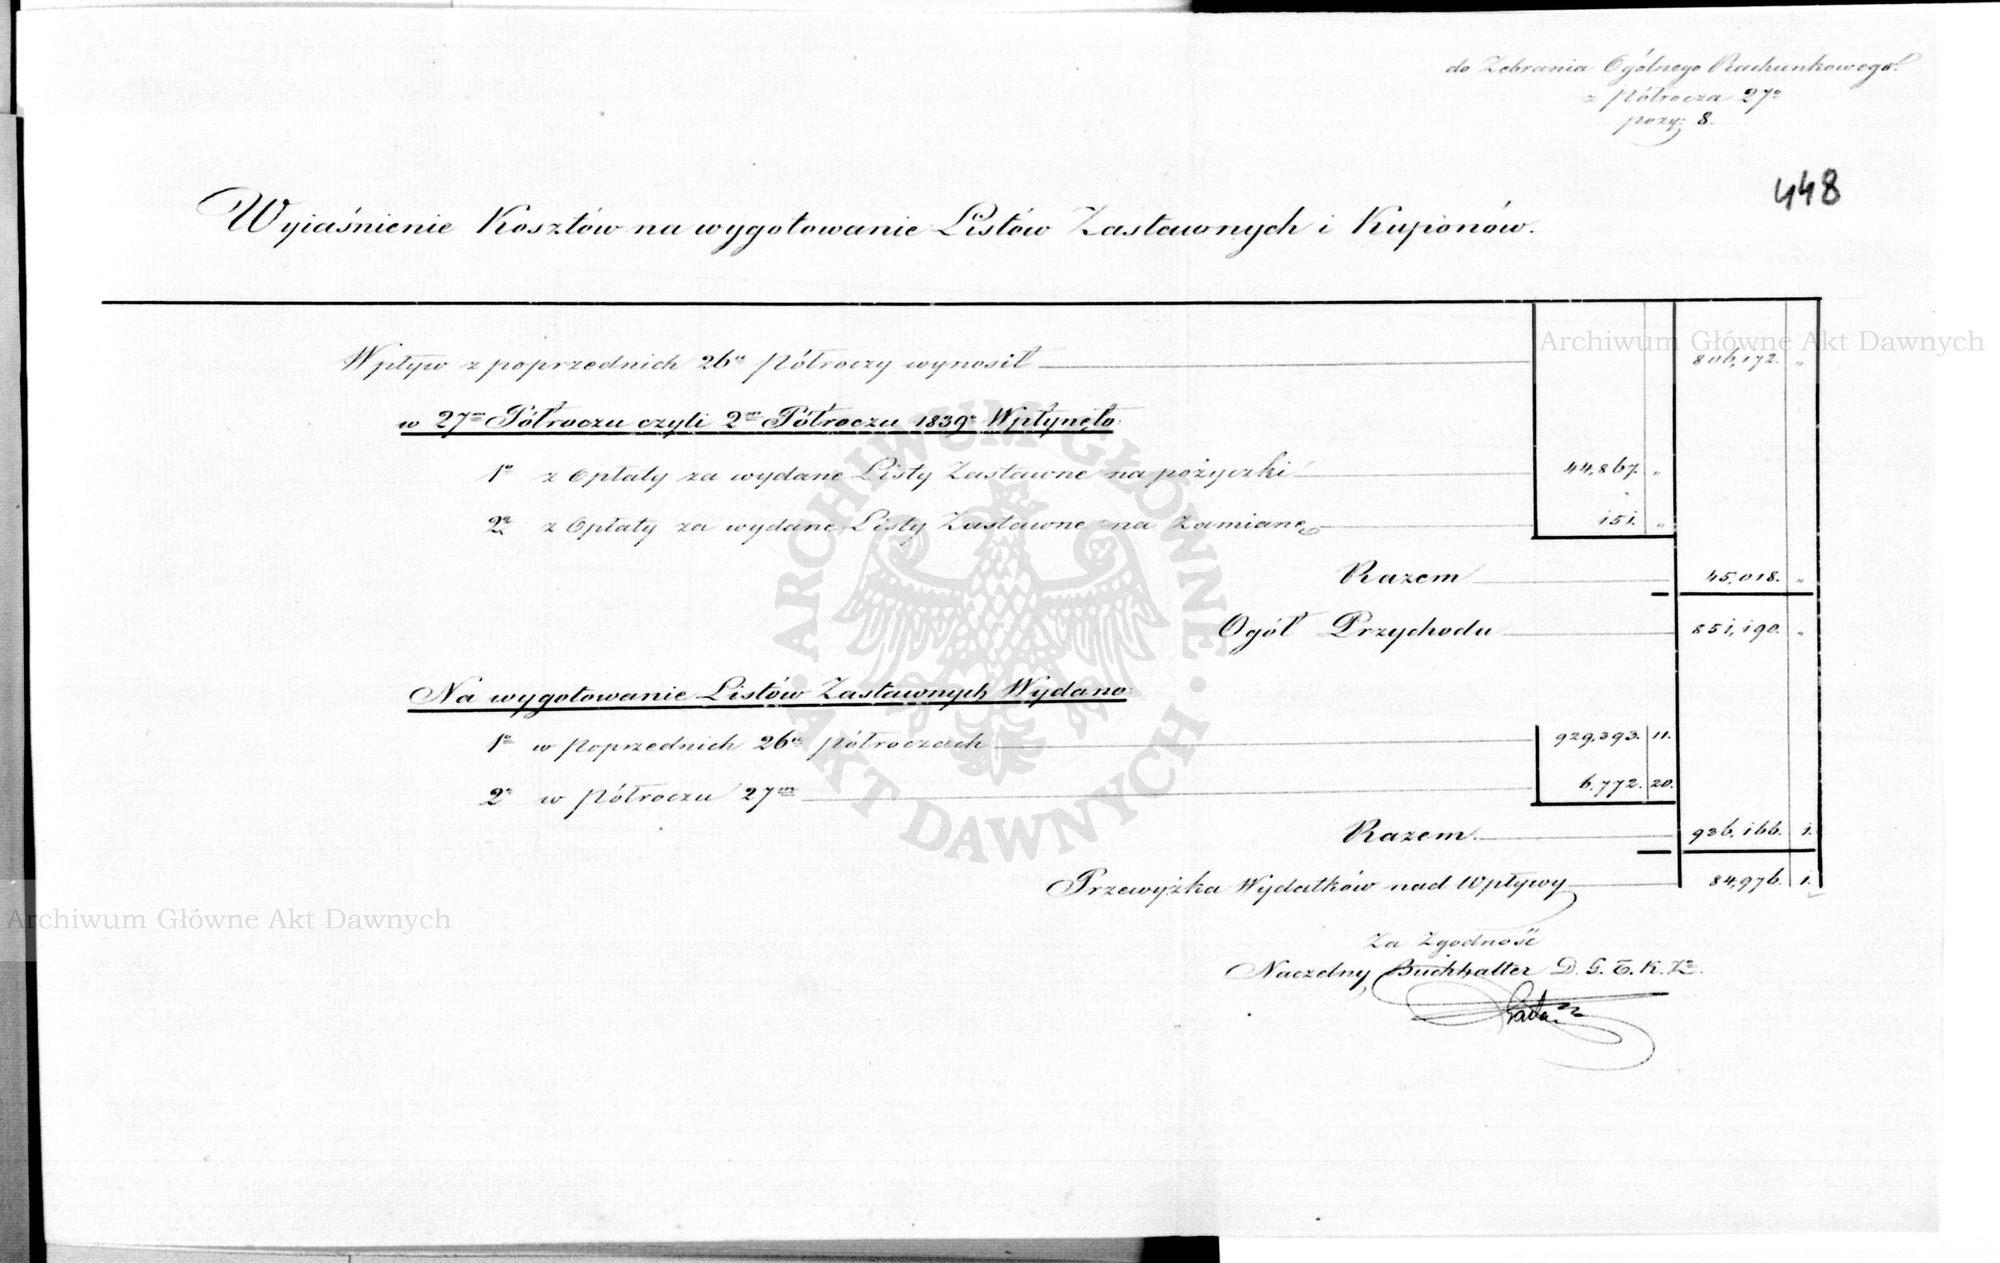 do Zebrania Ogólnego Rachunkowego.
z Półrocza 27º
pozy: 8.
448
Wyiaśnienie Kosztów na wygotowanie Listów Zastawnych i Kuponów.
Archiwum Główne Akt Dawnych
Wpływ z poprzednich 26u Półroczy wynosił 806,172. "
w 27m Półroczu czyli 2m Półroczu 1839º Wpłynęło:
1º z Opłaty za wydane Listy Zastawne na pożyczki 44,867. "
2º z Opłaty za wydane Listy Zastawne na Zamianę 151. "
Razem 45,018. "
Ogół Przychodu 851,190. "
Na wygotowanie Listów Zastawnych Wydano:
1º w poprzednich 26u półroczach 929,393. 11.
2º w Półroczu 27m 6,772. 20.
Razem 936,166. 1.
Przewyżka Wydatków nad Wpływy 84,976. 1.
Archiwum Główne Akt Dawnych
Za Zgodność
Naczelny Buchhalter D. G. T. K. Zº.
ARCHIWUM GŁÓWNE
AKT DAWNYCH